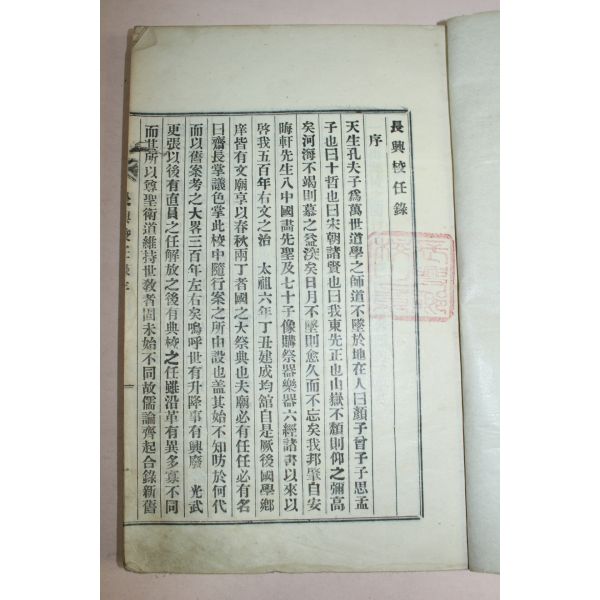 長興校任錄
序
天生孔夫子爲萬世道學之師道不墜於地在人曰顏子曾子子思孟
子也曰十哲也曰宋朝諸賢也曰我東先正也山嶽不頹則仰之彌高
矣河海不竭則慕之益深矣日月不墜則愈久而不忘矣我邦肇自安
晦軒先生入中國畵先聖及七十子像購祭器樂器六經諸書以來以
啓我五百年右文之治 太祖六年丁丑建成均舘自是厥後國學鄕
庠皆有文廟享以春秋兩丁者國之大祭典也夫廟必有任任必有名
曰齋長掌議色掌此校中隨行案之所由設也盖其始不知昉於何代
而以舊案考之大畧三百年左右矣嗚呼世有升降事有興廢 光武
更張以後有直員之任解放之後有典校之任雖沿革有異多寡不同
而其所以尊聖衛道維持世敎者固未始不同故儒論齊起合錄新舊